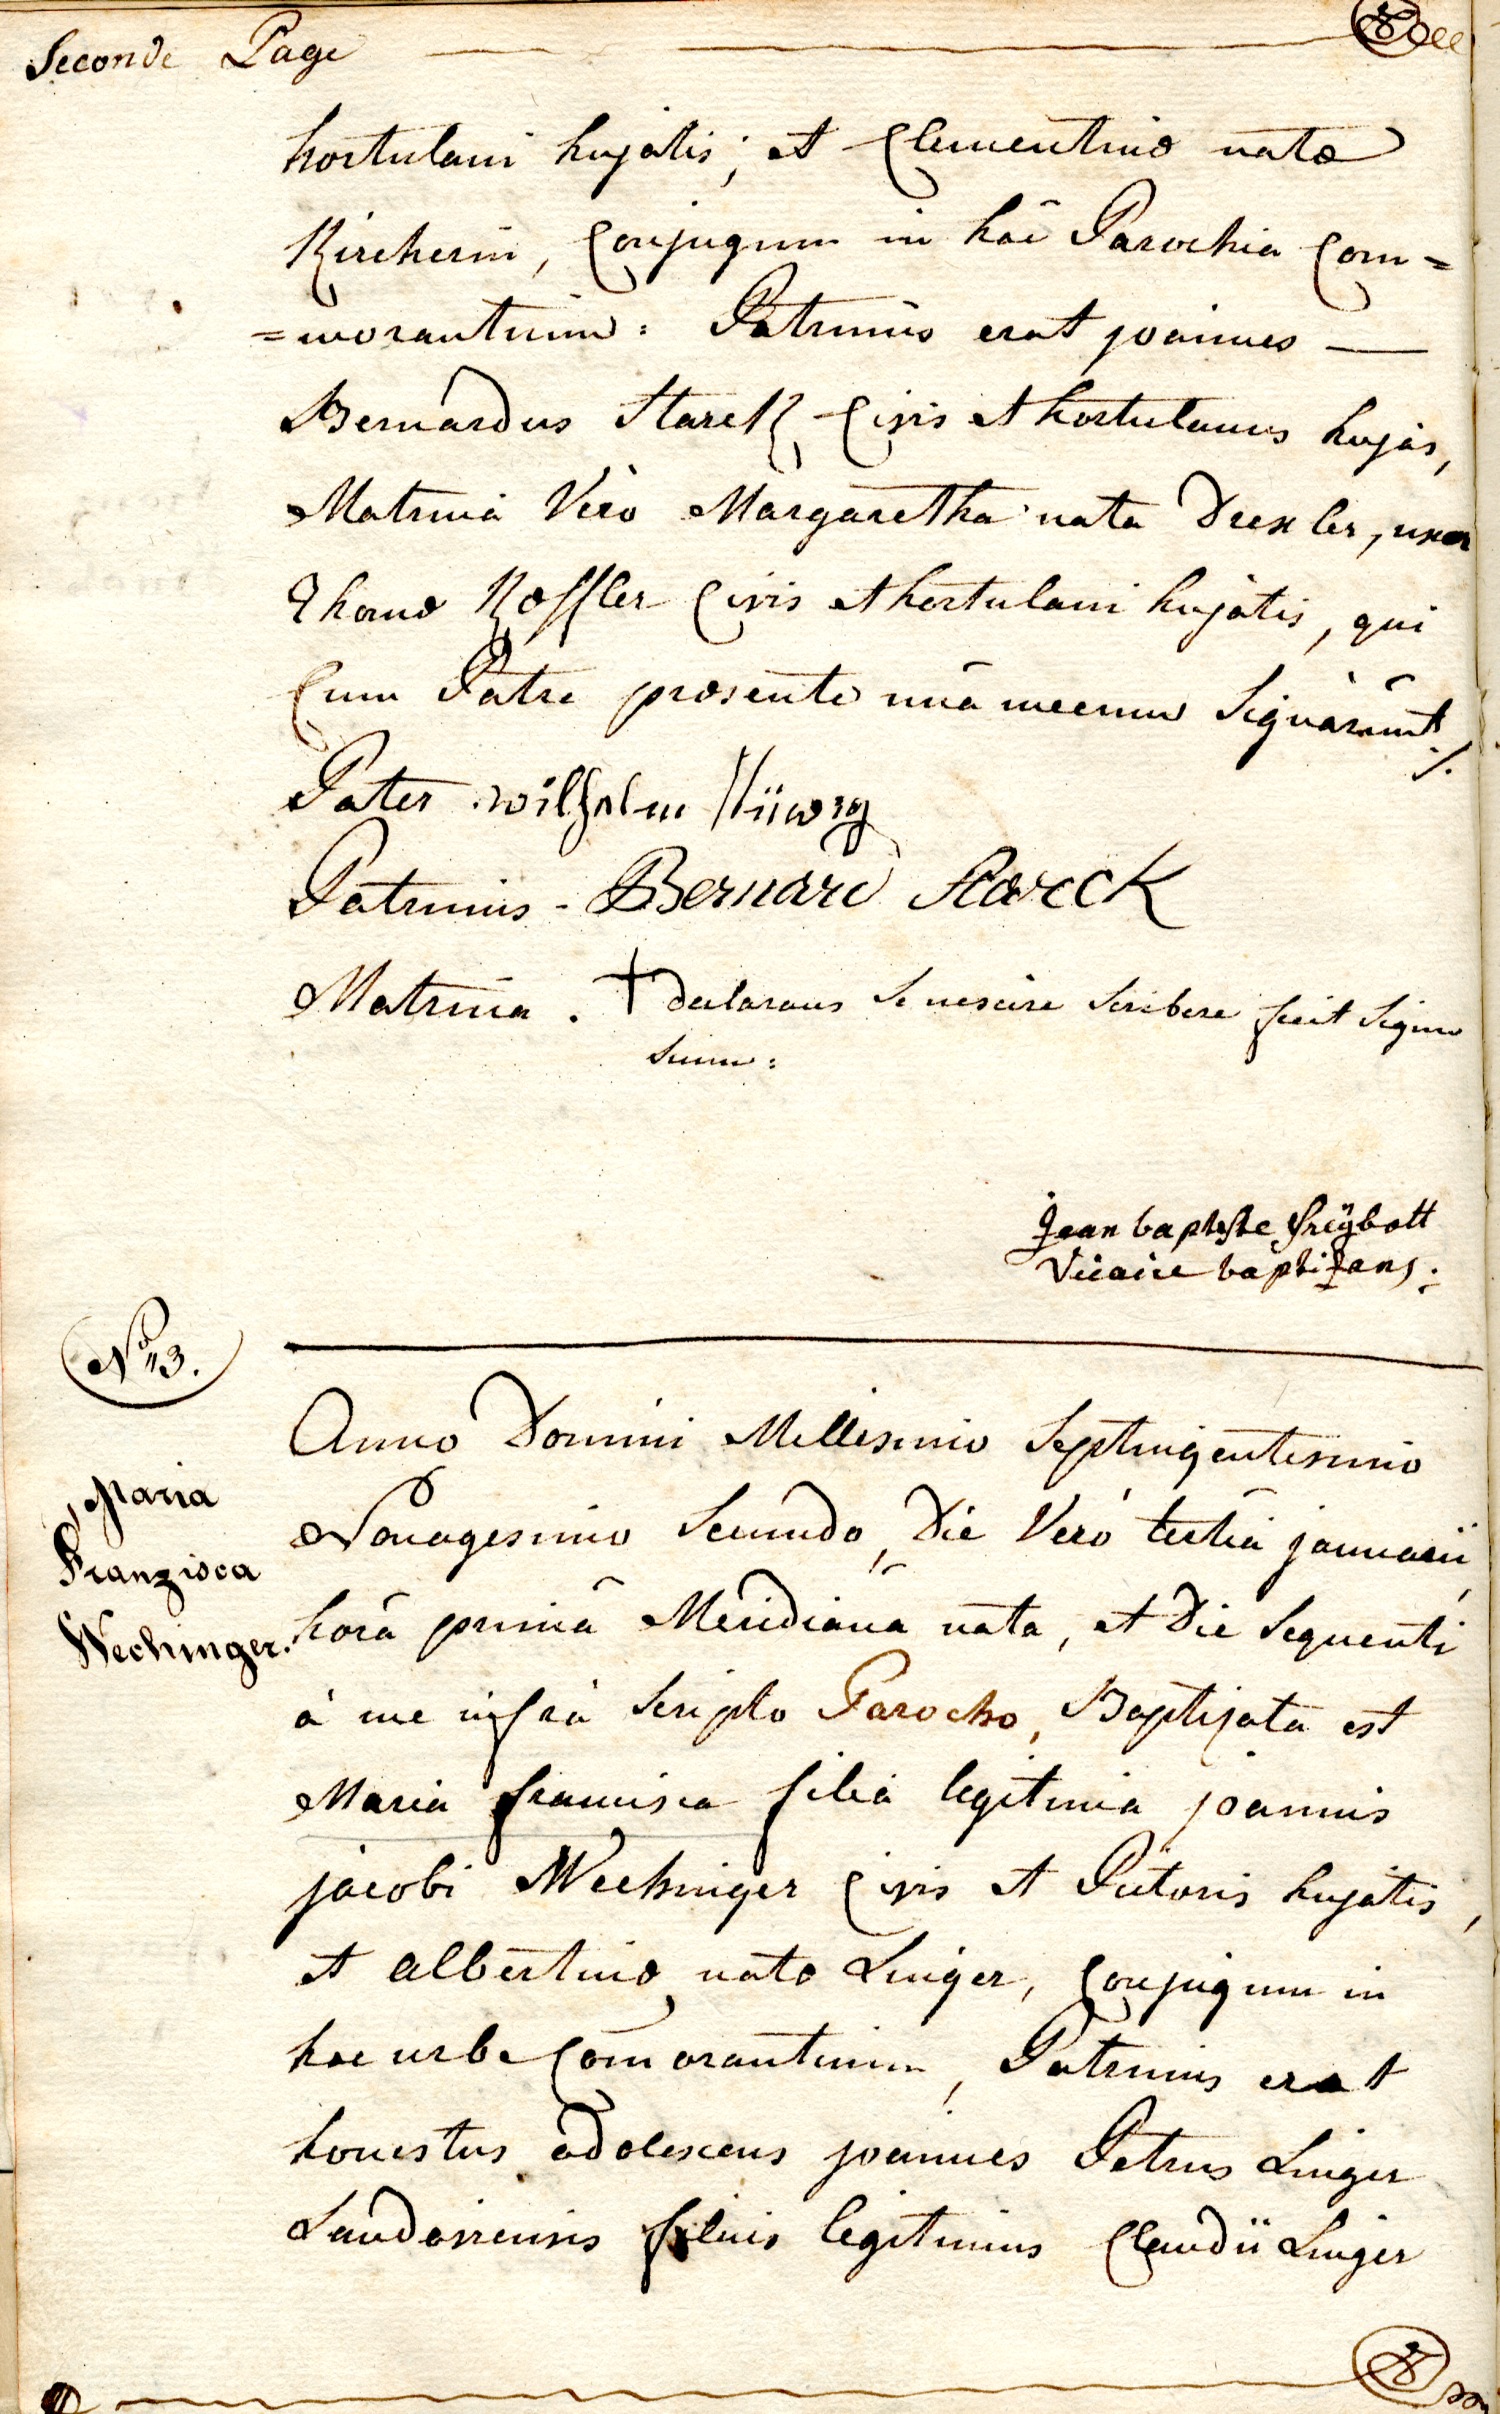 Seconde Page
hortulani hujatis; et Clementinæ natæ
Kircherin, Conjugum in hâc Parochia Com=
=morantium: Patrinus erat joannes —
Bernardus Starck, Civis et hortulanus hujas,
Matrina Verò Margaretha nata Drexler, uxor
Thomæ Koffler Civis et hortulani hujatis, qui
Cum Patre præsente unà mecum Signârunt ./.
Pater wilhelm
Patrinus - Bernard Starck
Matrina . † declarans Se nescire Scribere fecit Signum
Suum:
Jean baptiste freÿbott
Vicaire baptizans.
N° 3.
Maria
Franzisca
Wechinger.
Anno Domini Millesimo Septingentesimo
Nonagesimo Secundo, Die Verò tertiâ januarii,
horâ primâ Meridianâ nata, et Die Sequenti
à me infrà Scripto Parocho, Baptizata est
Maria francisca filia legitima joannis
jacobi Wechinger Civis et Pictoris hujatis,
et albertinæ natæ Linger, Conjugum in
hac urbe Com̄orantium, Patrinus erat
honestus adolescens joannes Petrus Linger
Landaviensis filius legitimus Claudii Linger